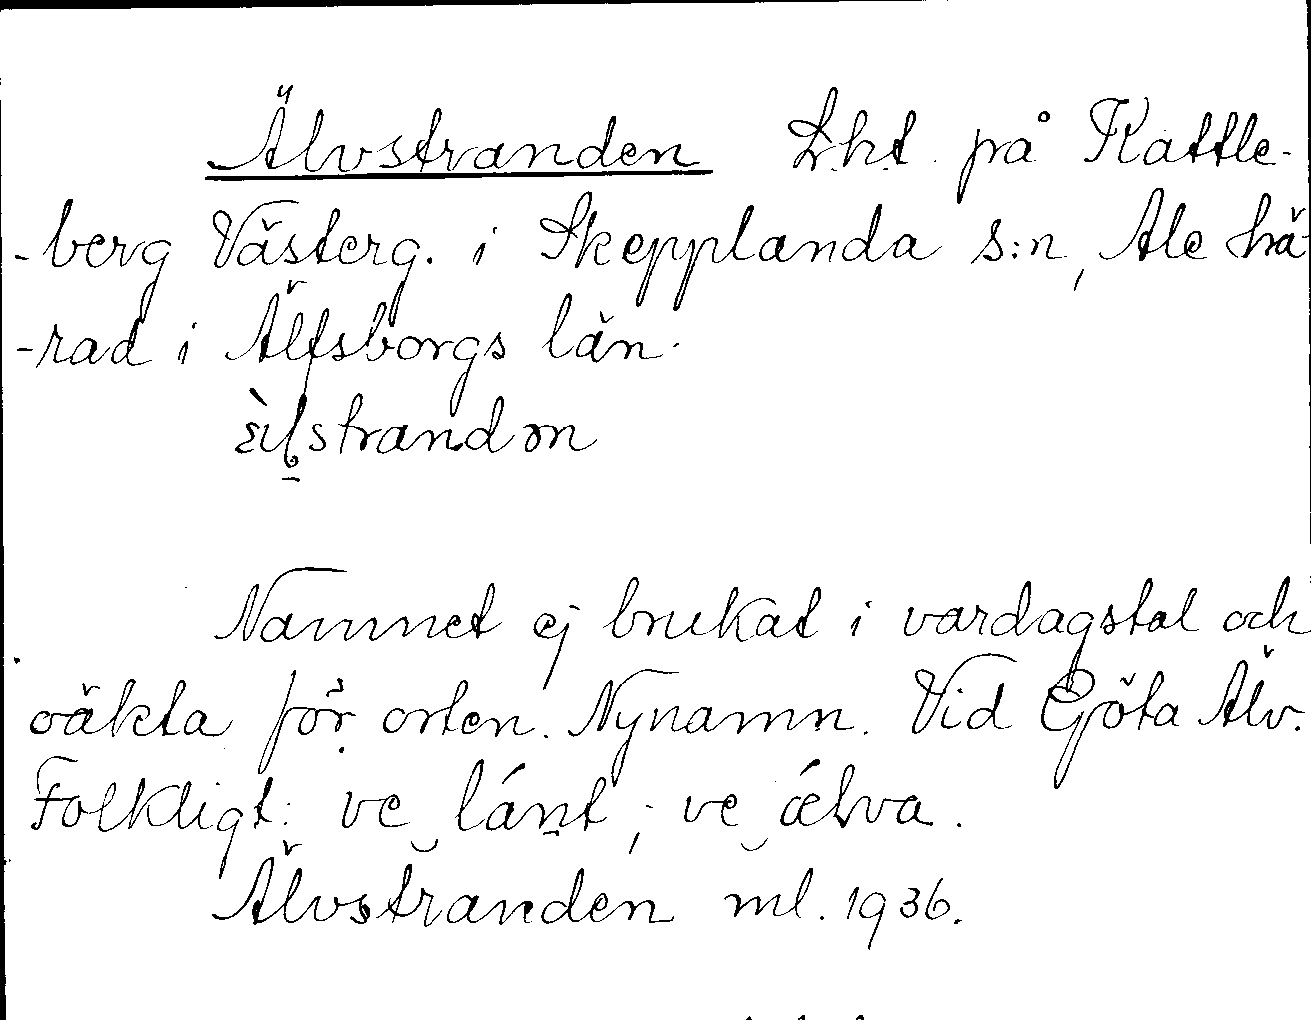 Älvstranden L.h.t. på Kattle-
-berg Västerg. i Skepplanda s:n, Ale hä-
-rad i Älfsborgs län.
Namnet ej brukat i vardagstal och
oäkta för orten. Nynamn. Vid Göta Älv.
Folkligt: ve lánt; ve ǽlva.
Älvstranden ml. 1936.